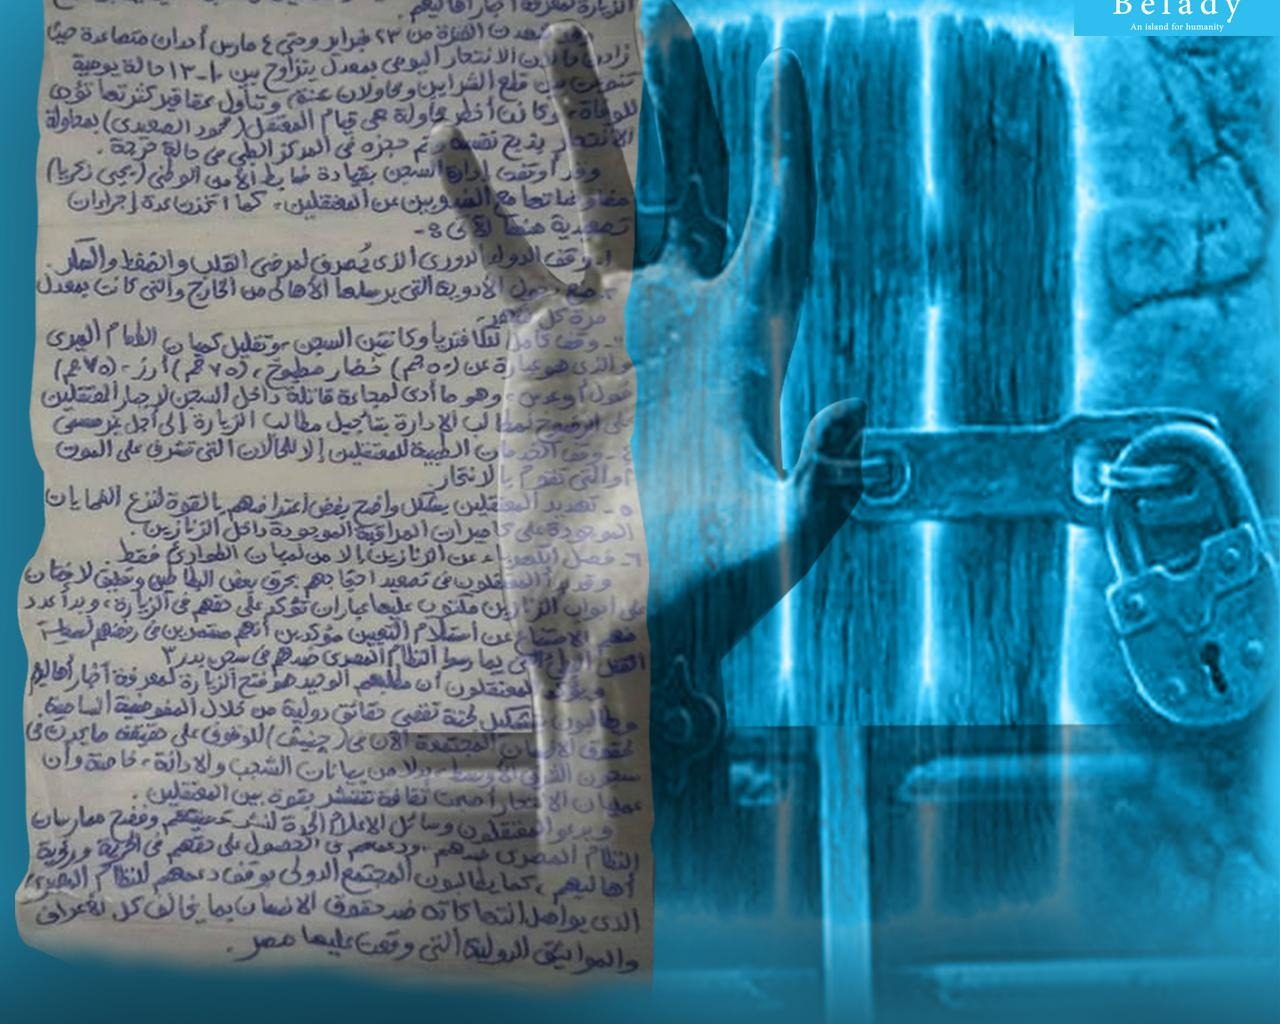 Belady
An island for humanity
الزيارة لمعرفة أخبار أهاليهم.
شهدت الفترة من ٢٣ فبراير وحتى ٤ مارس أحداث متصاعدة حيث
الانتحار اليومي بمعدل يتراوح بين ١٠-١٣ حالة يومية
قطع الشرايين ومحاولات شنق وتناول عقاقير كثرتها تؤدي
للوفاة، وكانت أخطر محاولة هي قيام المعتقل (محمود الصعيدي) بمحاولة
الانتحار بذبح نفسه وتم حجزه في المركز الطبي في حالة حرجة.
وقد أوقفت إدارة السجن بقيادة ضابط الأمن الوطني (يحيى زكريا)
مفاوضاتها مع المندوبين عن المعتقلين، كما اتخذت عدة إجراءات
تصعيدية منها الآتي:-
١- وقف الدواء الدوري الذي يُصرف لمرضى القلب والضغط والسكر.
٢- منع دخول الأدوية التي يرسلها الأهالي من الخارج والتي كانت بمعدل
مرة كل شهر.
٣- وقف كامل لكافتريا وكانتين السجن، وتقليل كميات الطعام الميري
والذي هو عبارة عن خضار مطبوخ، أرز،
فول أو عدس، وهو ما أدى لمجاعة قاتلة داخل السجن لإجبار المعتقلين
على الرضوخ لمطالب الإدارة بتأجيل مطالب الزيارة إلى أجل غير مسمى
٤- وقف الخدمات الطبية للمعتقلين إلا للحالات التي تشرف على الموت
أو التي تقوم بالانتحار.
٥- تهديد المعتقلين بشكل واضح بفض اعتراضهم بالقوة لنزع الغمايات
الموجودة على كاميرات المراقبة الموجودة داخل الزنازين.
٦- فصل الكهرباء عن الزنازين إلا من لمبات الطوارئ فقط
المعتقلون في تصعيد احتجاجهم بحرق بعض البطاطين وتعليق لافتات
على أبواب الزنازين مكتوب عليها عبارات تؤكد على حقهم في الزيارة، وبدأ عدد
منهم الامتناع عن استلام التعيين مؤكدين أنهم مستمرين في رفضهم لسياسة
القتل البطيء التي يمارسها النظام المصري ضدهم في سجن بدر٣
ويؤكد المعتقلون أن مطلبهم الوحيد هو فتح الزيارة لمعرفة أخبار أهاليهم
ويطالبون بتشكيل لجنة تقصي حقائق دولية من خلال المفوضية السامية
لحقوق الإنسان المجتمعة الآن في (جنيف) للوقوف على حقيقة ما يحدث في
سجون الشرق الأوسط، بدلا من بيانات الشجب والإدانة، خاصة وأن
عمليات الانتحار أضحت ثقافة تنتشر بقوة بين المعتقلين.
ويدعو المعتقلون وسائل الإعلام الحرة لنشر قضيتهم وفضح ممارسات
النظام المصري ضدهم، ودعمهم في الحصول على حقهم في الحرية ورؤية
أهاليهم، كما يطالبون المجتمع الدولي بوقف دعمهم للنظام المصري
الذي يواصل انتهاكاته ضد حقوق الإنسان بما يخالف كل الأعراف
والمواثيق الدولية التي وقعت عليها مصر.